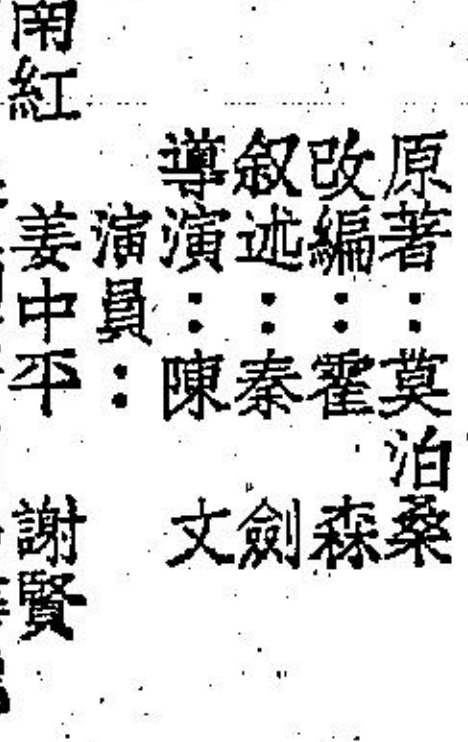 原著：莫泊桑
改編：霍森
叙述：秦劍
導演：陳文
演員：
姜中平 謝賢
紅